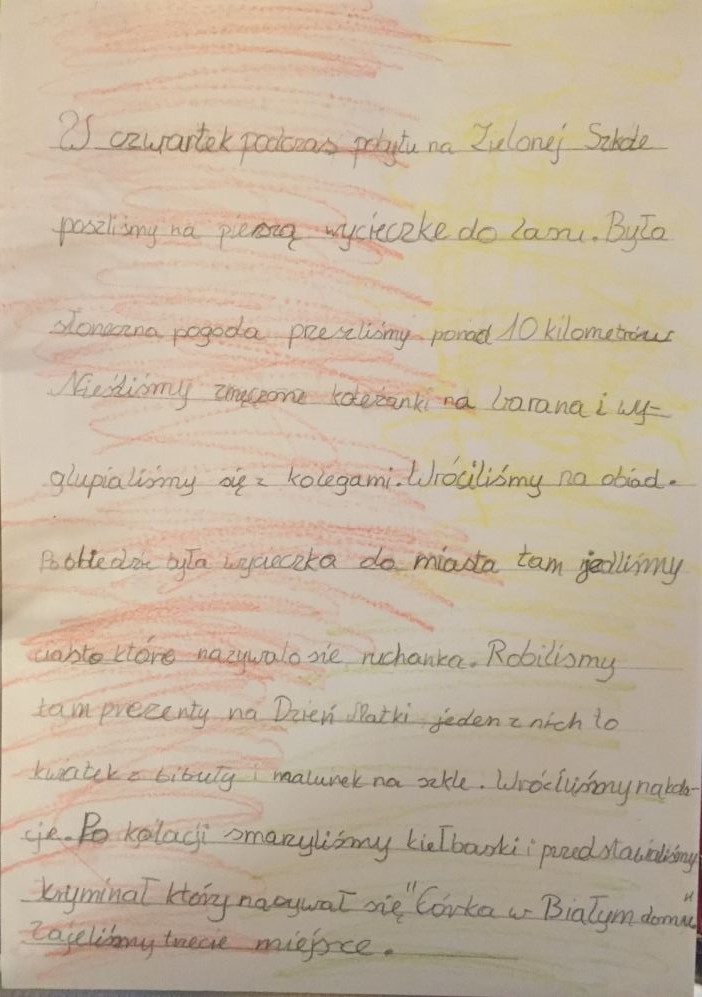 W czwartek podczas pobytu na Zielonej Szkole
poszliśmy na pierszą wycieczke do lasu. Była
słoneczna pogoda preszliśmy ponad 10 kilometrów
Nieśliśmy zmęczone koleżanki na barana i wy-
głupialiśmy się z kolegami. Wróciliśmy na obiad.
Po obiedzie była wycieczka do miasta tam jedliśmy
ciasto które nazywało sie ruchanka. Robilismy
tam prezenty na Dzień Matki jeden z nich to
kwiatek z bibuły i malunek na szkle. Wróciliśmy na kola-
cje. Po kolacji smarzyliśmy kiełbaski i przedstawialiśmy
kryminał który nazywał się "Córka w Białym domu"
Zajeliśmy trzecie miejsce.